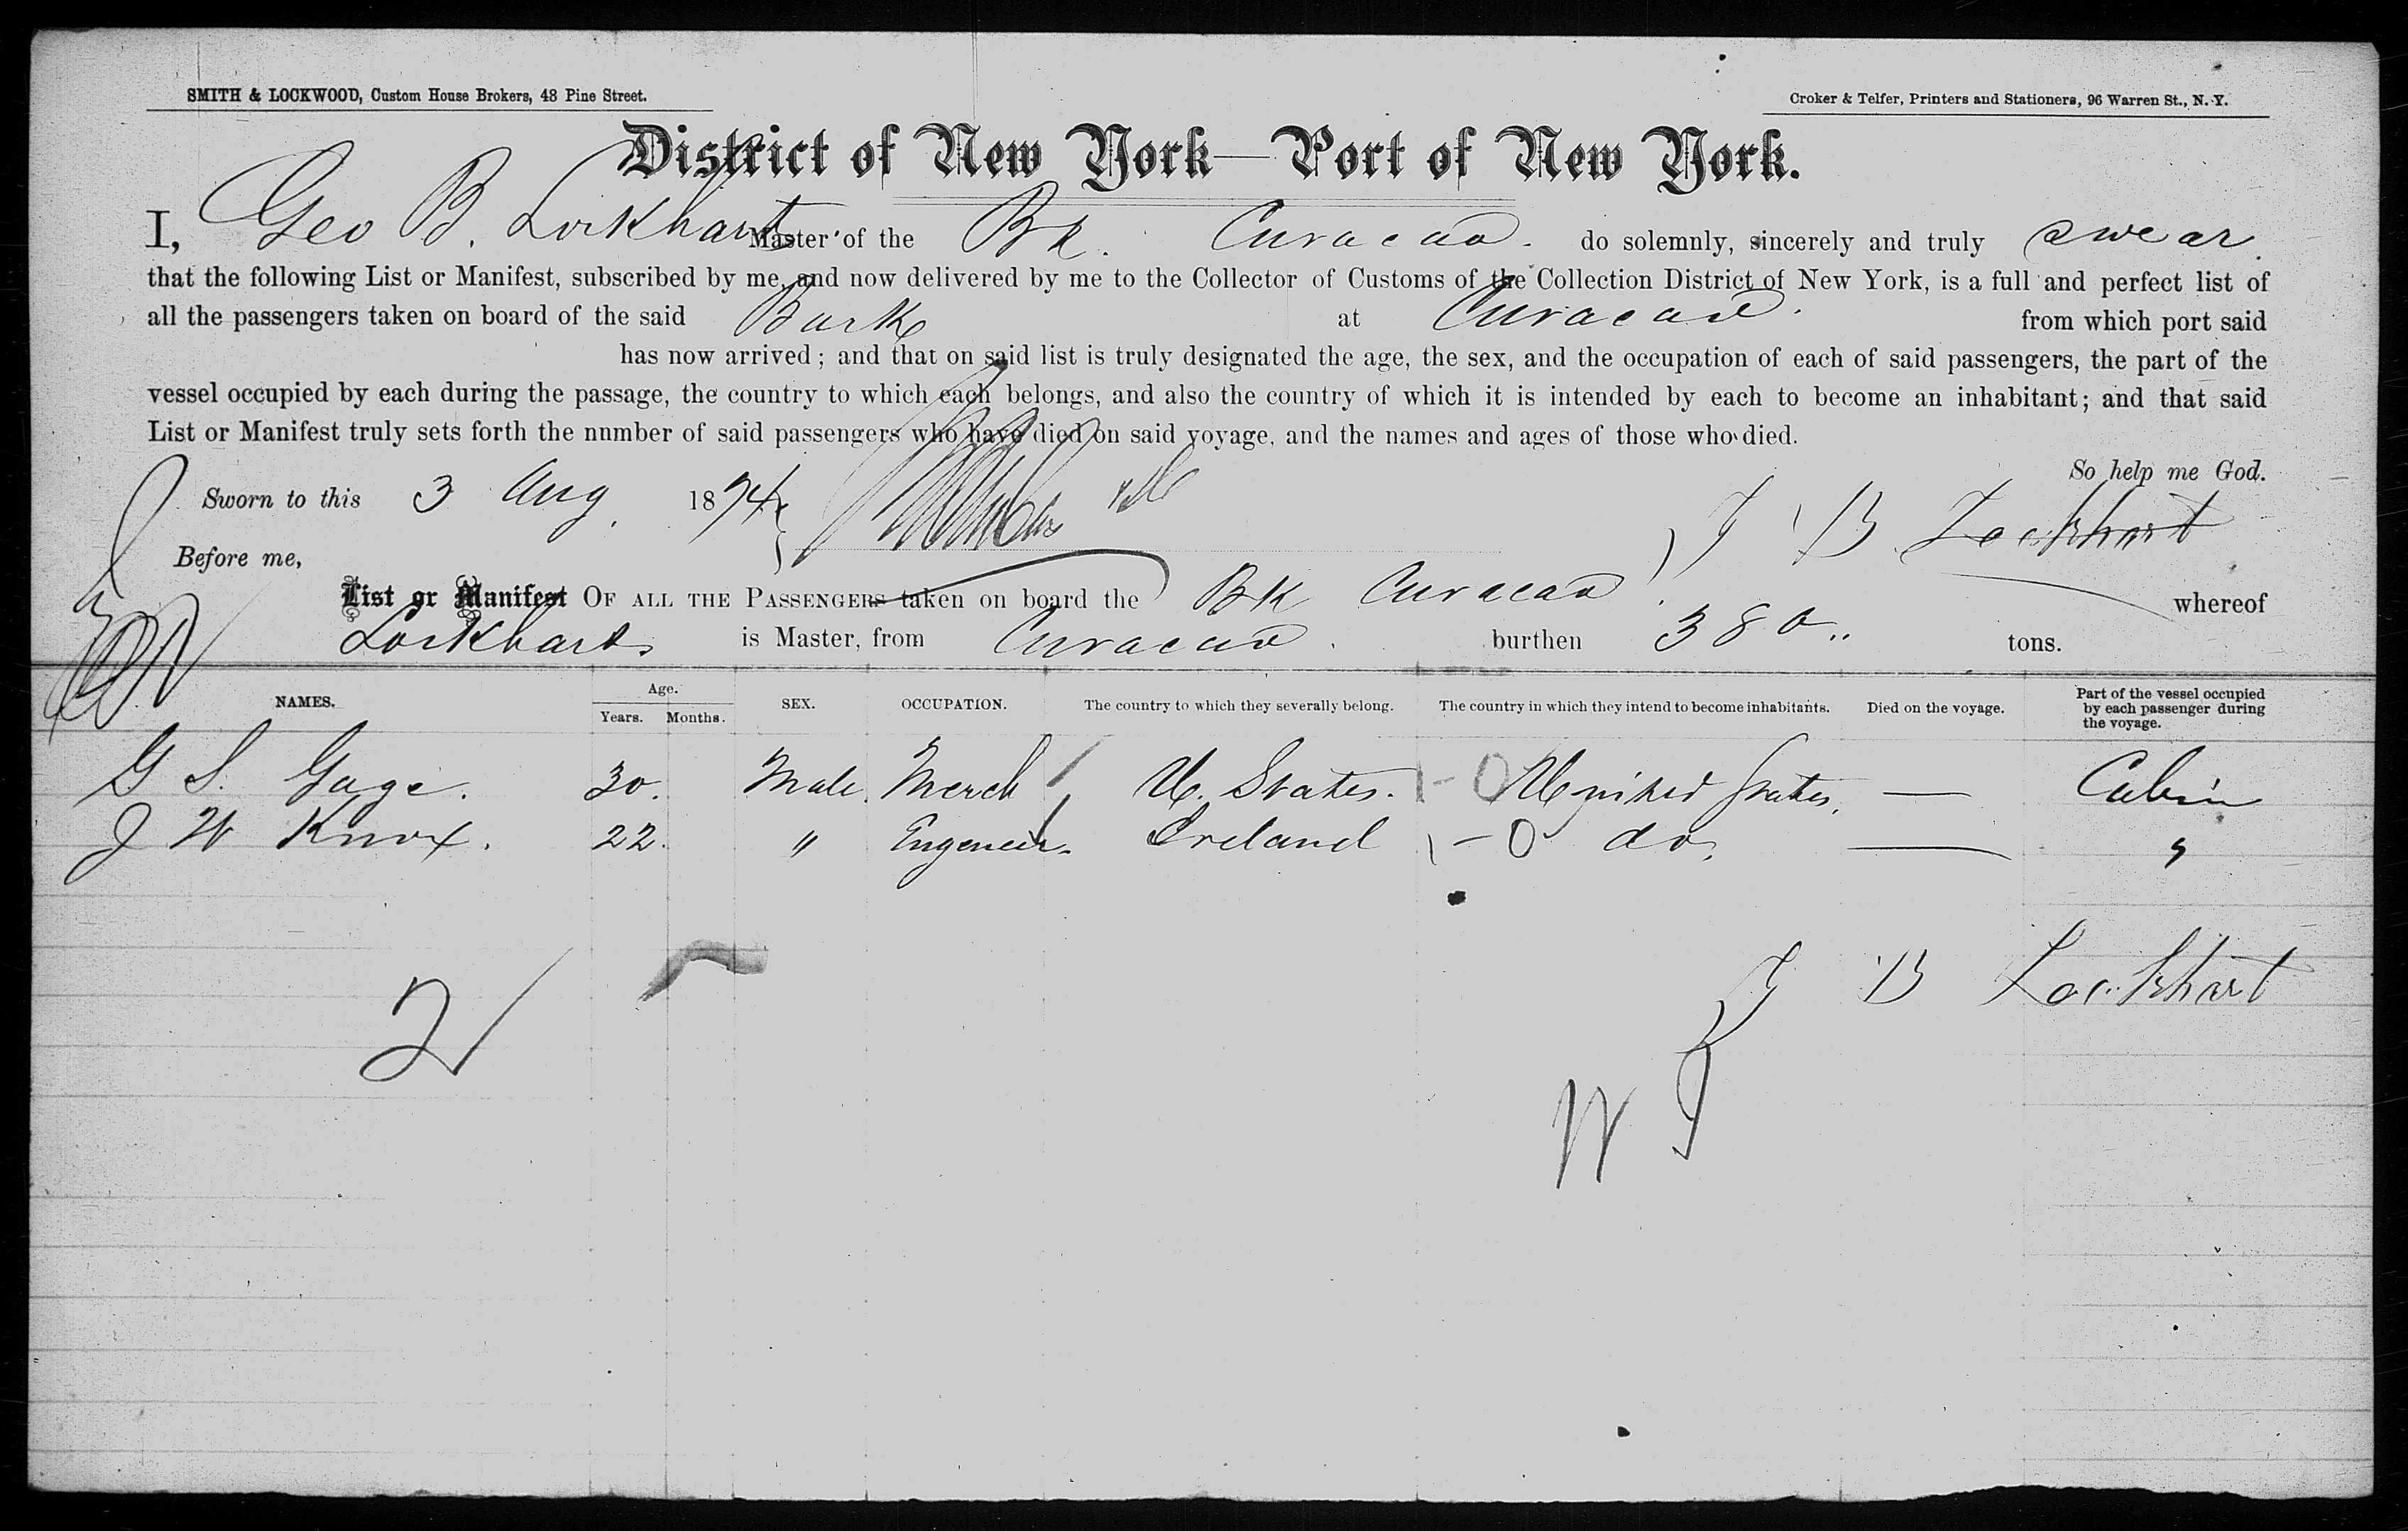 SMITH & LOCKWOOD, Custom House Brokers, 48 Pine Street.
Croker & Telfer, Printers and Stationers, 96 Warren St., N. Y.
District of New York—Port of New York.
I, Geo B. Lockhart Master of the Bk. Curacao. do solemnly, sincerely and truly swear.
that the following List or Manifest, subscribed by me, and now delivered by me to the Collector of Customs of the Collection District of New York, is a full and perfect list of
all the passengers taken on board of the said Bark at Curacao. from which port said
has now arrived; and that on said list is truly designated the age, the sex, and the occupation of each of said passengers, the part of the
vessel occupied by each during the passage, the country to which each belongs, and also the country of which it is intended by each to become an inhabitant; and that said
List or Manifest truly sets forth the number of said passengers who have died on said voyage, and the names and ages of those who died.
So help me God.
Sworn to this 3 Aug. 1874
B Lockhart
Before me,
List or Manifest OF ALL THE PASSENGERS taken on board the BK Curacao. whereof
Lockhart is Master, from Curacao. burthen 380 tons.
NAMES. Age. Years. Months. SEX. OCCUPATION. The country to which they severally belong. The country in which they intend to become inhabitants. Died on the voyage. Part of the vessel occupied by each passenger during the voyage.
G S. Gage. 30. Male. Merch / U. States. 1-0 United States. — Cabin
J W Knox. 22. " Engeneer. / Ireland \-0 do. — "
B Lockhart
2
W